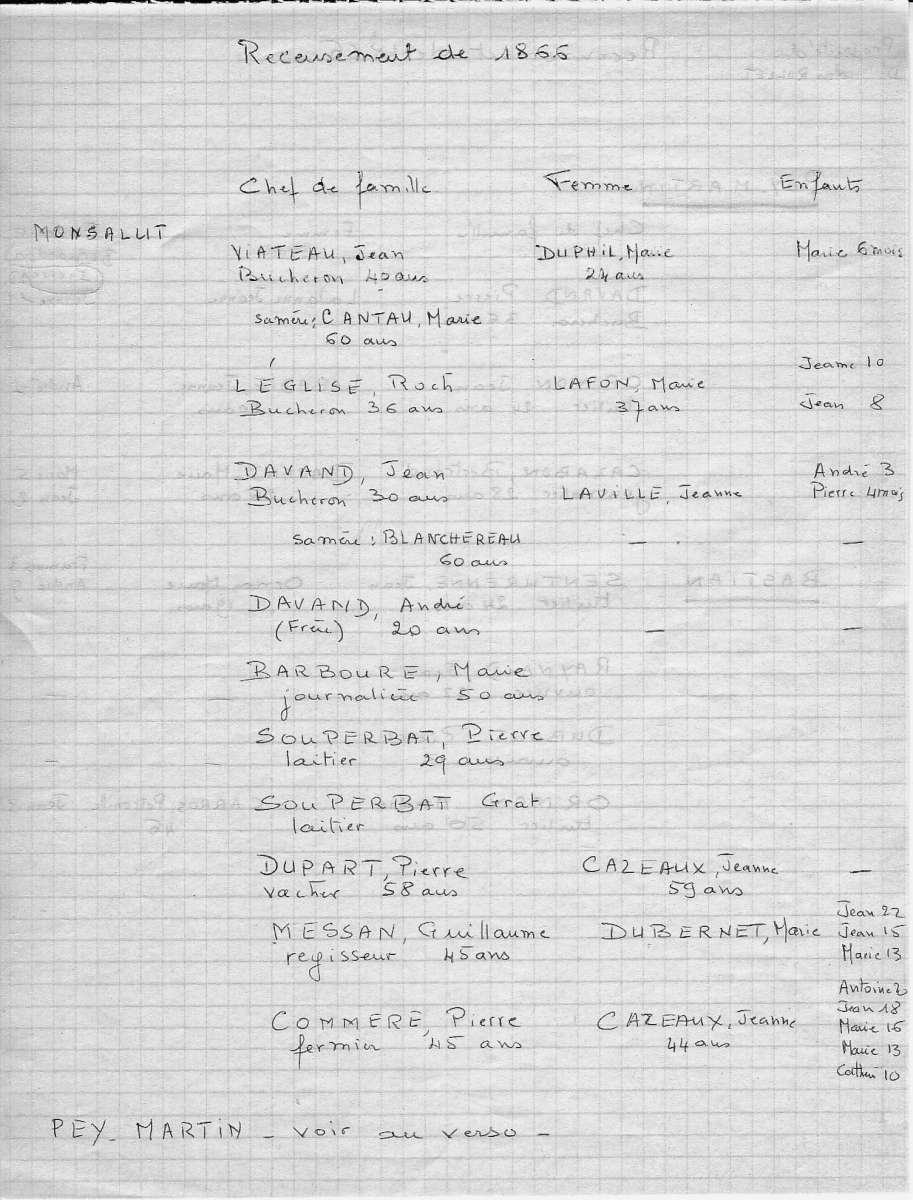 Recensement de 1866
Chef de famille Femme Enfants
MONSALUT
VIATEAU, Jean DUPHIL, Marie Marie 6 mois
Bucheron 40 ans 24 ans
sa mère: CANTAU, Marie
60 ans
Jeanne 10
LÉGLISE, Roch LAFON, Marie
Bucheron 36 ans 37 ans Jean 8
DAVAND, Jean André 3
Bucheron 30 ans LAVILLE, Jeanne Pierre 4 mois
sa mère : BLANCHEREAU — —
60 ans
DAVAND, André
(Frère) 20 ans — —
BARBOURE, Marie
journalière 50 ans
SOUPERBAT, Pierre
laitier 29 ans
SOUPERBAT Grat
laitier
DUPART, Pierre CAZEAUX, Jeanne —
vacher 58 ans 59 ans
Jean 22
MESSAN, Guillaume DUBERNET, Marie Jean 15
regisseur 45 ans Marie 13
Antoine
Jean 18
COMMERE, Pierre CAZEAUX, Jeanne Marie 16
fermier 45 ans 44 ans Marie 13
10
PEY-MARTIN - voir au verso -